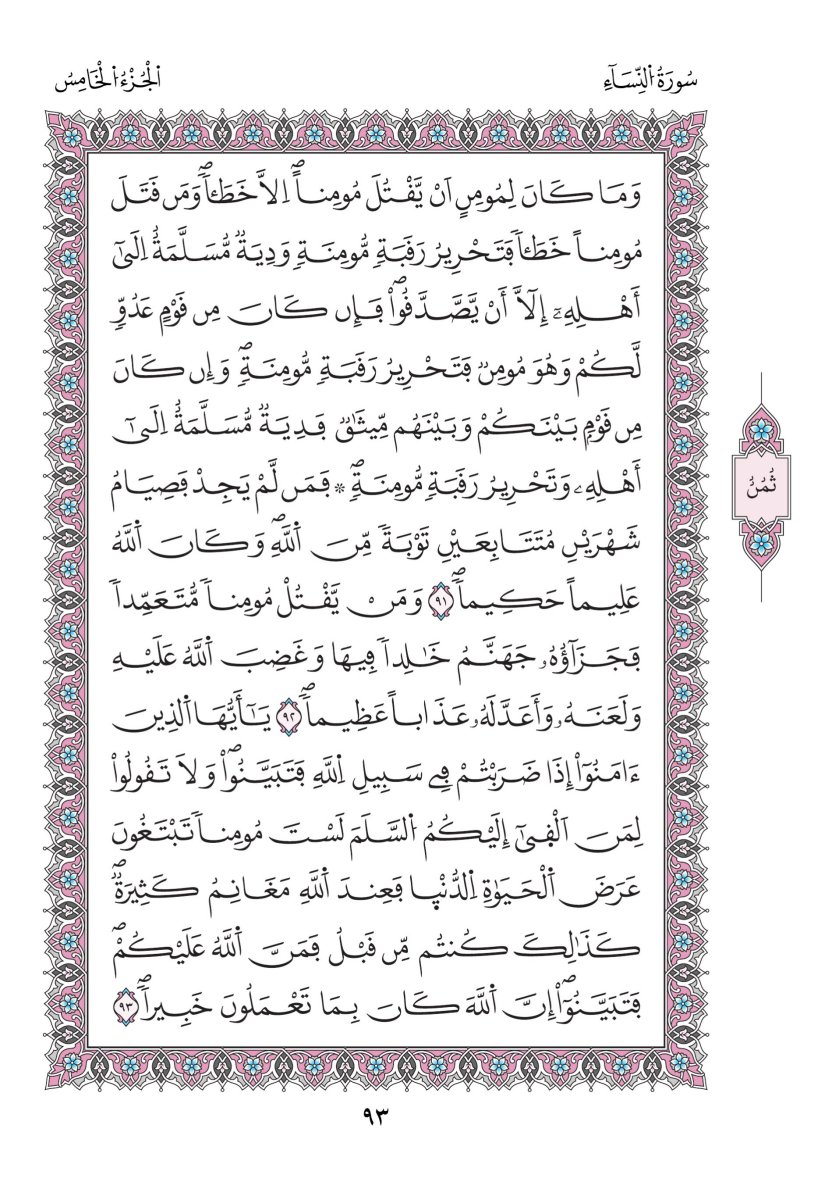 سُورَةُ اُ۬لنِّسَآءِ
اَ۬لْجُزْءُ اُ۬لْخَامِسُ
وَمَا كَانَ لِمُومِنٍ اَنْ يَّقْتُلَ مُومِناً اِلَّا خَطَـٔاًۖ وَمَن قَتَلَ
مُومِناً خَطَـٔاً فَتَحْرِيرُ رَقَبَةٖ مُّومِنَةٖ وَدِيَةٞ مُّسَلَّمَةٌ اِلَىٰٓ
أَهْلِهِۦٓ إِلَّآ أَنْ يَّصَّدَّقُواْۖ فَإِن كَانَ مِن قَوْمٍ عَدُوّٖ
لَّكُمْ وَهُوَ مُومِنٞ فَتَحْرِيرُ رَقَبَةٖ مُّومِنَةٖۖ وَإِن كَانَ
مِن قَوْمِۢ بَيْنَكُمْ وَبَيْنَهُم مِّيثَٰقٞ فَدِيَةٞ مُّسَلَّمَةٌ اِلَىٰٓ
أَهْلِهِۦ وَتَحْرِيرُ رَقَبَةٖ مُّومِنَةٖۖ * فَمَن لَّمْ يَجِدْ فَصِيَامُ
شَهْرَيْنِ مُتَتَابِعَيْنِ تَوْبَةٗ مِّنَ اَ۬للَّهِۖ وَكَانَ اَ۬للَّهُ
عَلِيماً حَكِيماٗۖ ٩١ وَمَنْ يَّقْتُلْ مُومِناٗ مُّتَعَمِّداٗ
فَجَزَآؤُهُۥ جَهَنَّمُ خَٰلِداٗ فِيهَا وَغَضِبَ اَ۬للَّهُ عَلَيْهِ
وَلَعَنَهُۥ وَأَعَدَّ لَهُۥ عَذَاباً عَظِيماٗۖ ٩٢ يَٰٓأَيُّهَا اَ۬لذِينَ
ءَامَنُوٓاْ إِذَا ضَرَبْتُمْ فِے سَبِيلِ اِ۬للَّهِ فَتَبَيَّنُواْۖ وَلَا تَقُولُواْ
لِمَنَ اَلْقٜىٰٓ إِلَيْكُمُ اُ۬لسَّلَمَ لَسْتَ مُومِناٗ تَبْتَغُونَ
عَرَضَ اَ۬لْحَيَوٰةِ اِ۬لدُّنْي۪ا فَعِندَ اَ۬للَّهِ مَغَانِمُ كَثِيرَةٞۖ
كَذَٰلِكَ كُنتُم مِّن قَبْلُ فَمَنَّ اَ۬للَّهُ عَلَيْكُمْۖ
فَتَبَيَّنُوٓاْۖ إِنَّ اَ۬للَّهَ كَانَ بِمَا تَعْمَلُونَ خَبِيراٗۖ ٩٣
ثُمُنُ
٩٣